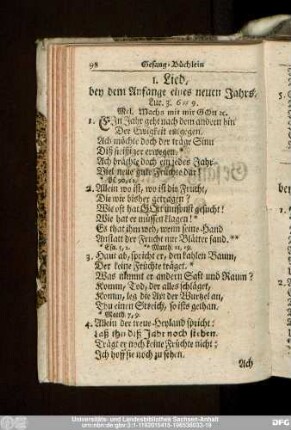 98 Gesang-Büchlein
1. Lied,
bey dem Anfange eines neuen Jahrs,
Luc. 3. 6 = 9.
Mel. Machs mit mir GOtt ꝛc.
1. EIn Jahr geht nach dem andern hin
Der Ewigkeit entgegen.
Ach möchte doch der träge Sinn
Diß fleißiger erwegen. *
Ach brächte doch ein jedes Jahr
Viel neue gute Früchte dar!
2. Allein wo ist, wo ist die Frucht,
Die wir bisher getragen?
Wie oft hat GOtt umsonst gesucht!
Wie hat er müssen klagen! *
Es that ihm weh, wenn seine Hand
Anstatt der Frucht nur Blätter fand. **
3. Haut ab, spricht er, den kahlen Baum,
Der keine Früchte träget. *
Was nimmt er andern Saft und Raum?
Komm, Tod, der alles schläget,
Komm, leg die Axt der Wurzel an,
Thu einen Streich, so ists gethan.
* Matth 7, 9.
4. Allein der treue Heyland spricht:
Laß ihn diß Jahr noch stehen.
Trägt er noch keine Früchte nicht;
Ich hoff sie noch zu sehen.
Ach
Universitäts- und Landesbibliothek Sachsen-Anhalt
DFG